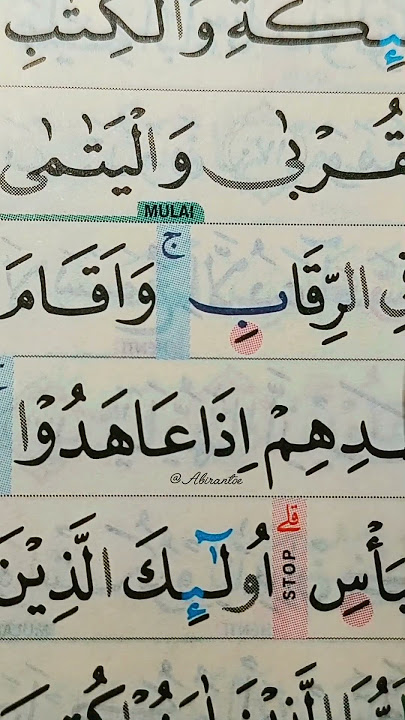 ـىِٕكَةِ وَالْكِتٰبِ
قُرْبٰى وَالْيَتٰمٰى
MULAI
الرِّقَابِ ج وَاَقَامَ
ـدِهِمْ اِذَا عَاهَدُوْا
@Abirantoe
بَأْسِ قلے STOP اُولٰۤىِٕكَ الَّذِيْنَ